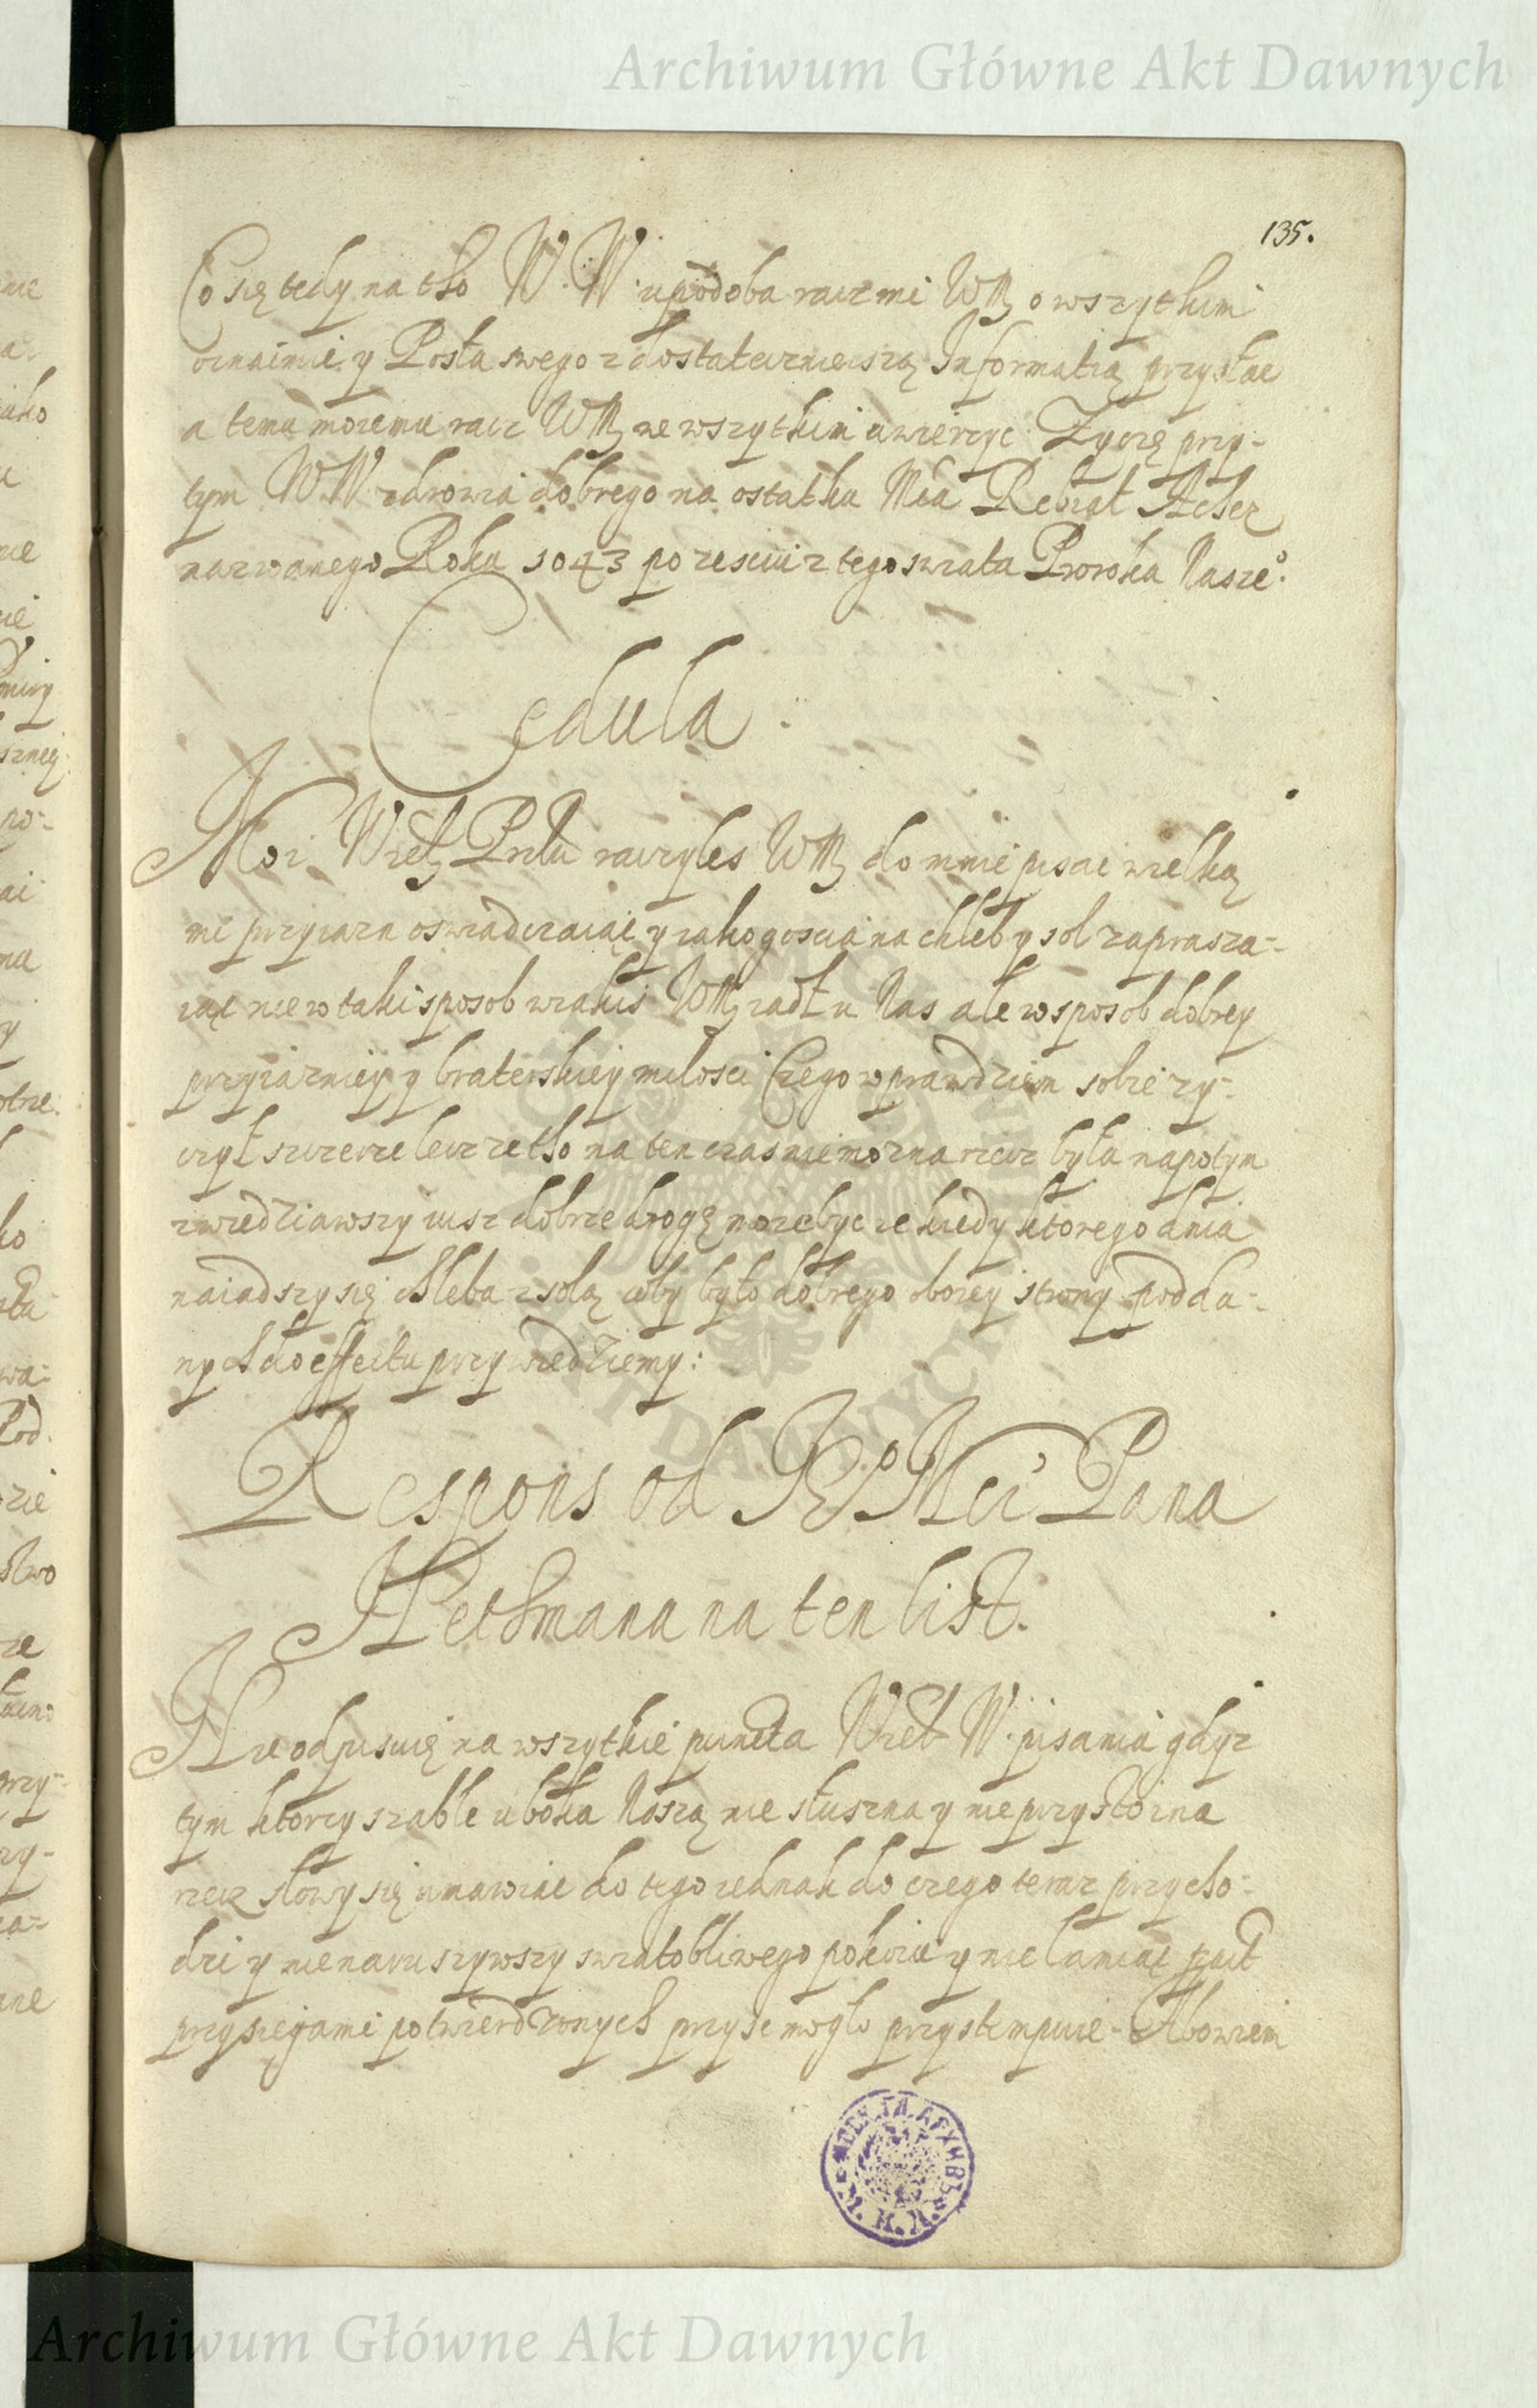 Archiwum Główne Akt Dawnych
135.
Co się tedy na tho W. W. upodoba racz mi WM o wszythim
oznaimic y Posła swego z dostatecznieiszą Informatią przysłac
a temu moiemu racz WM we wszythim uwierzyc. Zyczę przy-
tym W W zdrowia dobrego na ostathu Mca Rebiał Acher
nazwanego Roku 1043 po zesciu z tego swiata Proroka Nasze:
Cedula.
Moi Wiel Przlu raczyłes WM do mnie pisac wielką
mi przyiazn oswiadczaiąc y iako goscia na chleb y sol zaprasza-
iąc nie w taki sposob w iakis WM iadł u Nas ale w sposob dobrey
przyiazniey y braterskiey miłosci Czego w prawdziem sobie zy-
czył szczerze lecz ze tho na ten czas nie można rzecz była napotym
zwiedziawszy iusz dobrze drogę może byc ze kiedy ktorego dnia
naiadszy się chleba z solą coby było dobrego oboiey strony podda-
nych do effectu przywiedziemy:
Respons od Je° Mci Pana
Hethmana na ten list.
Nie odpisuię na wszythie puncta Wiel W. pisania gdyz
tym ktorzy szable u boka Noszą nie słuszna y nie przystoina
rzecz słowy się umawiac do tego iednak do czego teraz przycho-
dzi y nie naruszywszy swiatobliwego pokoiu y nie łamiąc pact
przysięgami potwierdzonych przysc mogło przystempuię. Abowiem
Archiwum Główne Akt Dawnych